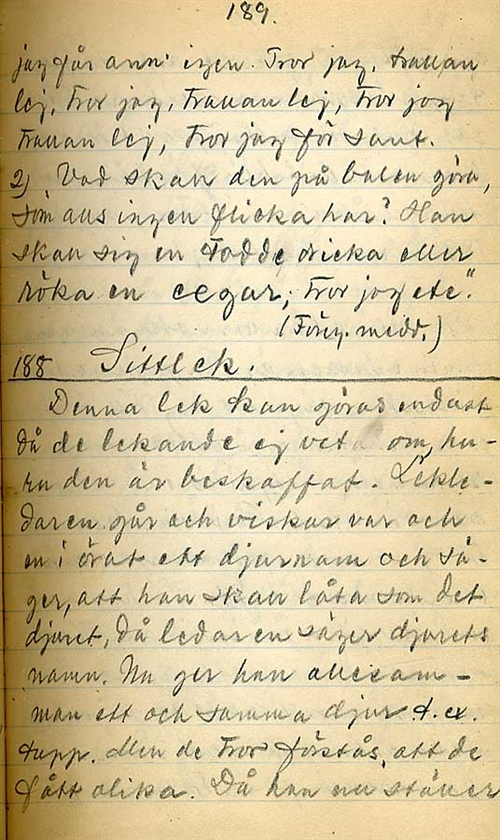 189.
jag får ann' igen. Tror jag, trallan
lej, tror jag, trallan lej, tror jag
trallan lej, tror jag för sant.
2) Vad skall den på balen göra,
som alls ingen flicka har? Han
skall sig en todde dricka eller
röka en cegar, tror jag etc."
(Förg. medd.)
188 Sittlek.
Denna lek kan göras endast
då de lekande ej veta om, hu-
ru den är beskaffat. Lekle-
daren går och viskar var och
en i örat ett djurnamn och sä-
ger, att han skall låta som det
djuret, då ledaren säger djurets
namn. Nu ger han allesam-
man ett och samma djur t.ex.
tupp. Men de tror förstås, att de
fått olika. Då han nu ställer